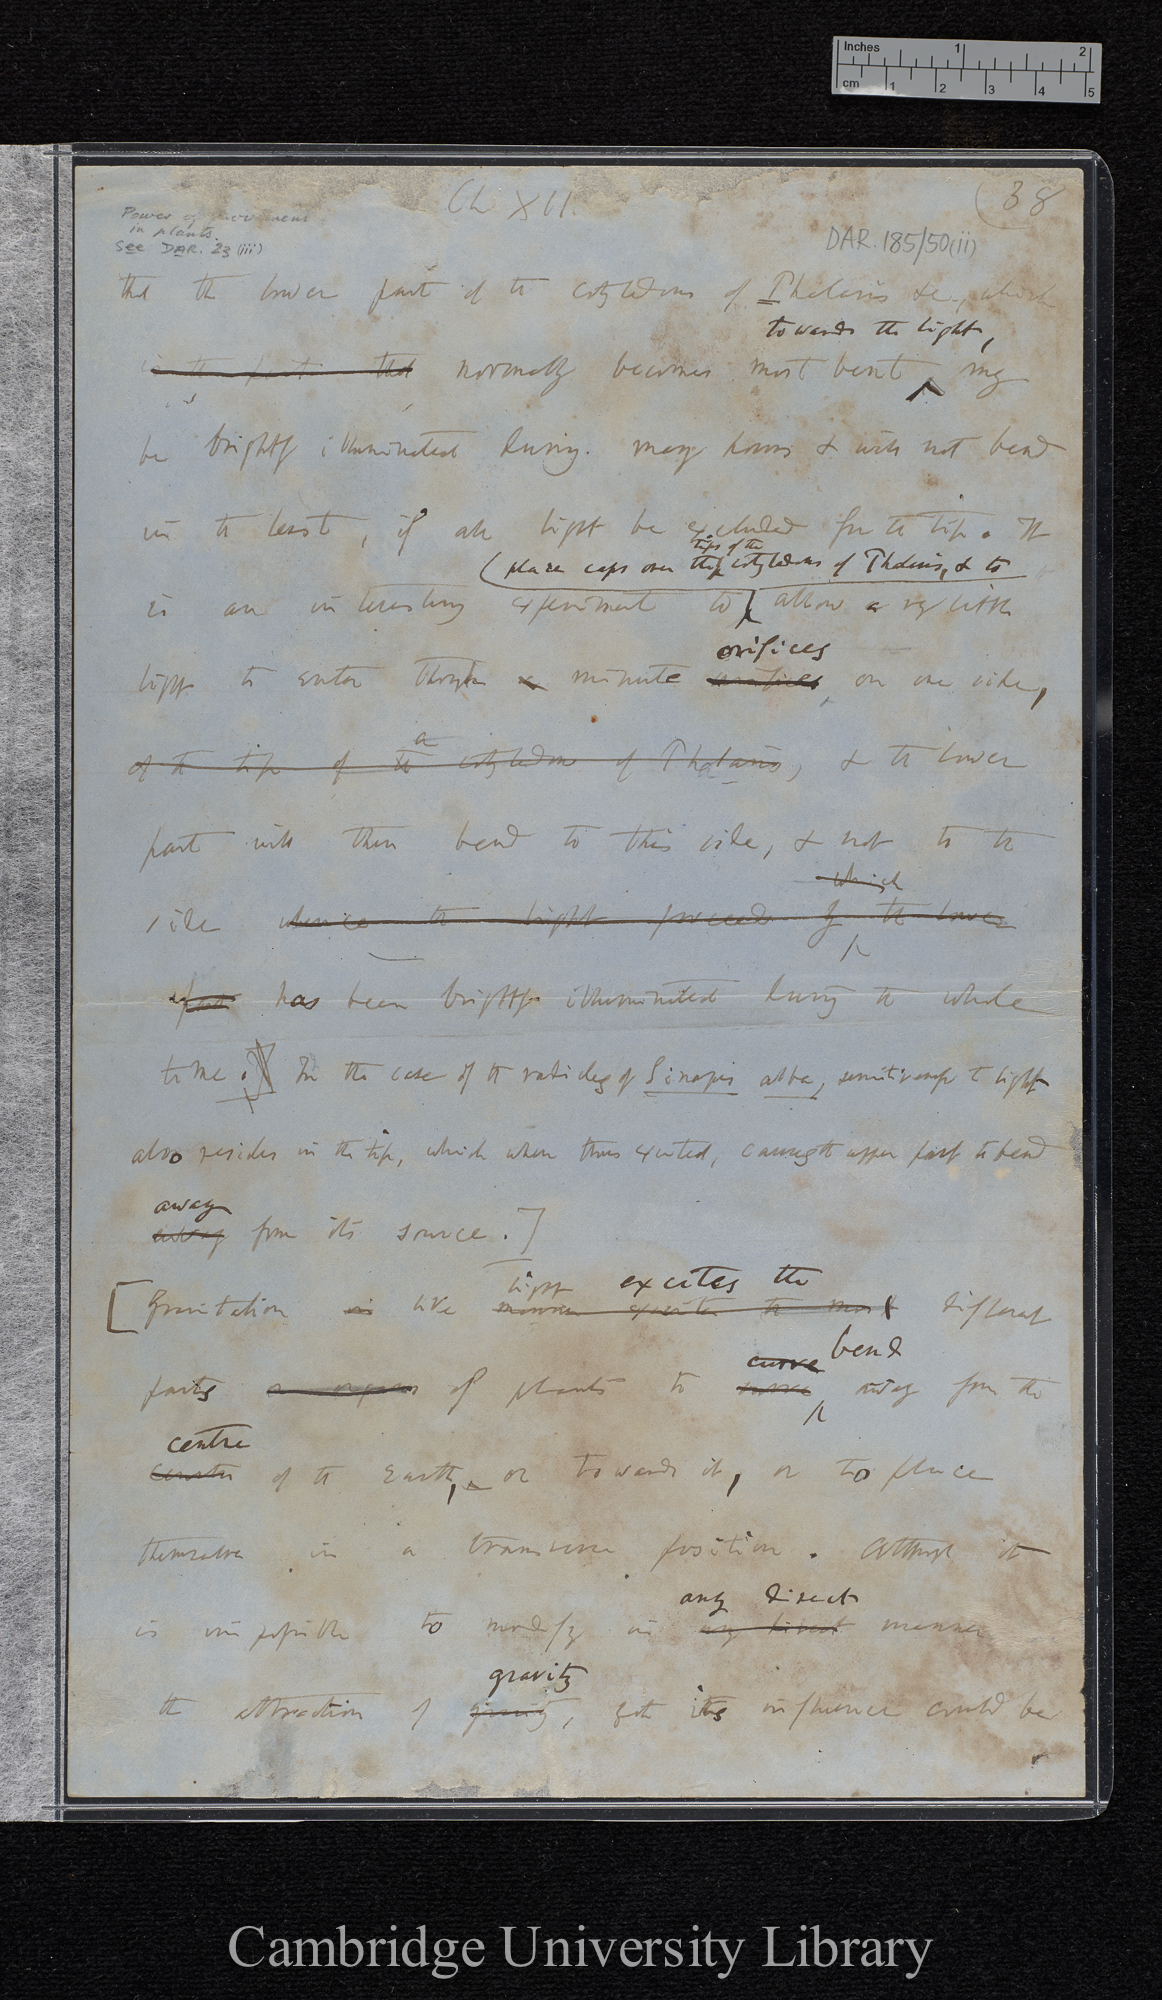 Inches 1 2
cm 1 2 3 4 5
Ch XII.
(38
Power of movement
in plants.
See DAR. 23 (iii)
DAR. 185/50(ii)
that the lower part of the cotyledons of Phalaris &c., which
towards the light,
is the part that normally becomes most bent may
be brightly illuminated during many hours & will not bend
in the least, if all light be excluded from the tip. It
tips of the
(place caps over the cotyledons of Phalaris, & to
is an interesting experiment to allow a very little
orifices
light to enter through a minute orifices, on one side,
a
of the tip of the cotyledon of Phalaris, & the lower
part will then bend to this side, & not to the
which
side whence the light proceeds if the lower
part has been brightly illuminated during the whole
time. In the case of the radicles of Sinapis alba, sensitiveness to light
also resides in the tip, which when thus excited, causes the upper part to bend
away
away from its source.]
light excites the
[Gravitation in like manner excites the most different
curve bend
parts or organs of plants to curve away from the
centre
center of the Earth, or towards it, or to place
themselves in a transverse position. Although it
any direct
is impossible to modify in any direct manner
gravity
the attraction of gravity, yet its influence could be
Cambridge University Library